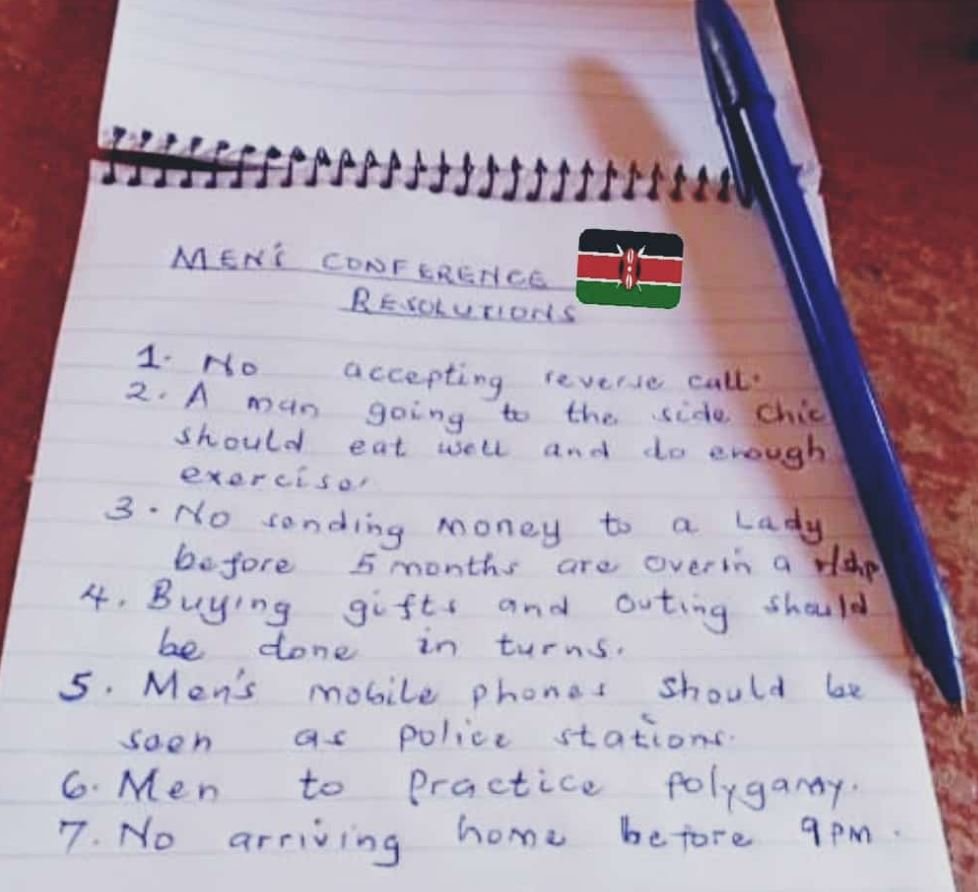 MEN'S CONFERENCE
RESOLUTIONS
1. No accepting reverse call.
2. A man going to the side chic
should eat well and do enough
exercise.
3. No sending money to a Lady
before 5 months are over in a r/shp
4. Buying gifts and outing should
be done in turns.
5. Men's mobile phones should be
seen as police stations.
6. Men to practice polygamy.
7. No arriving home before 9 PM.